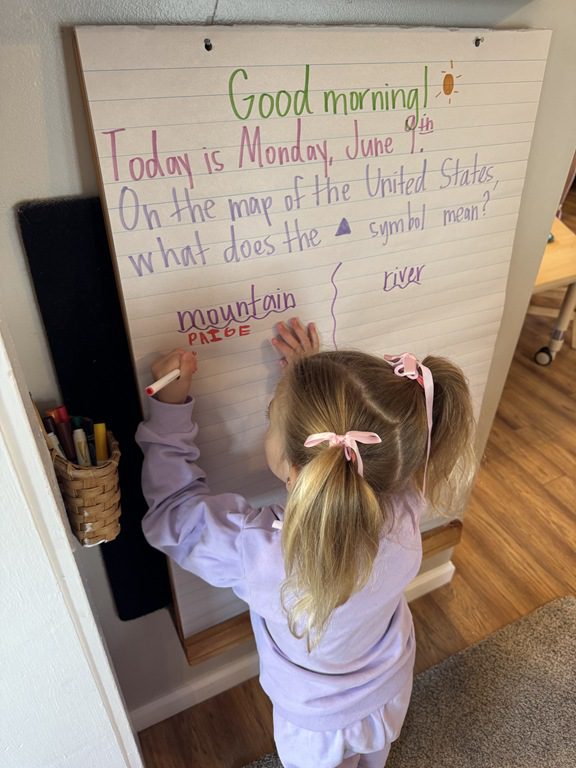 Good morning!
Today is Monday, June 9th.
On the map of the United States,
what does the ▲ symbol mean?
mountain river
PAIGE